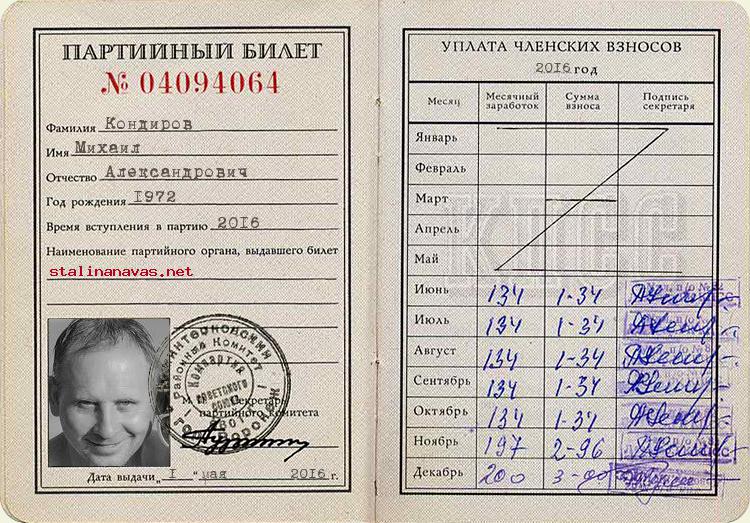 ПАРТИЙНЫЙ БИЛЕТ
№ 04094064
Фамилия Кондиров
Имя Михаил
Отчество Александрович
Год рождения 1972
Время вступления в партию 2016
Наименование партийного органа, выдавшего билет
stalinanavas.net
М. П. Секретарь
партийного комитета
Районный Комитет
Компартия
Советского
Союза
Дата выдачи „ 1 “ мая 2016 г.
УПЛАТА ЧЛЕНСКИХ ВЗНОСОВ
2016 год
Месяц Месячный заработок Сумма взноса Подпись секретаря
КПСС
Январь
Февраль
Март
Апрель
Май
Июнь 134 1-34
Июль 134 1-34
Август 134 1-34
Сентябрь 134 1-34
Октябрь 134 1-34
Ноябрь 197 2-96
Декабрь 200